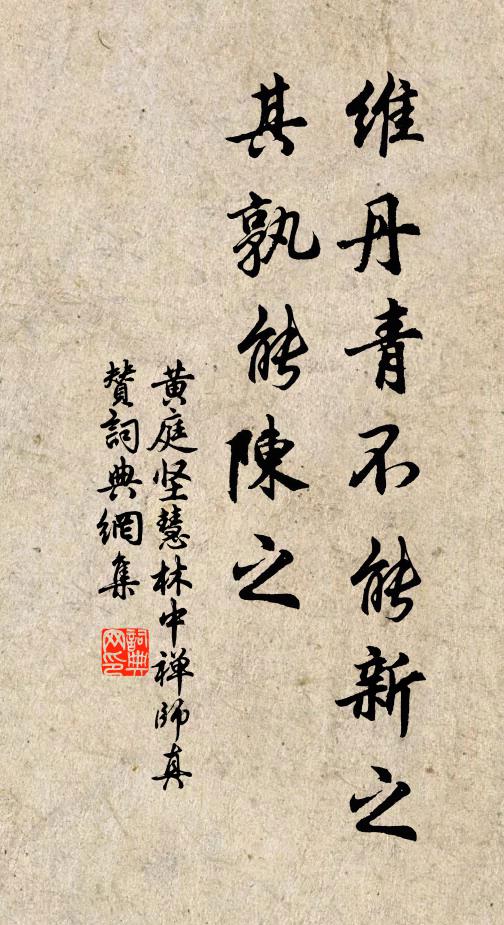 維丹青不能新之
其孰能陳之
黄庭坚慧林中禅師真
贊詞典網集
詞典
网印